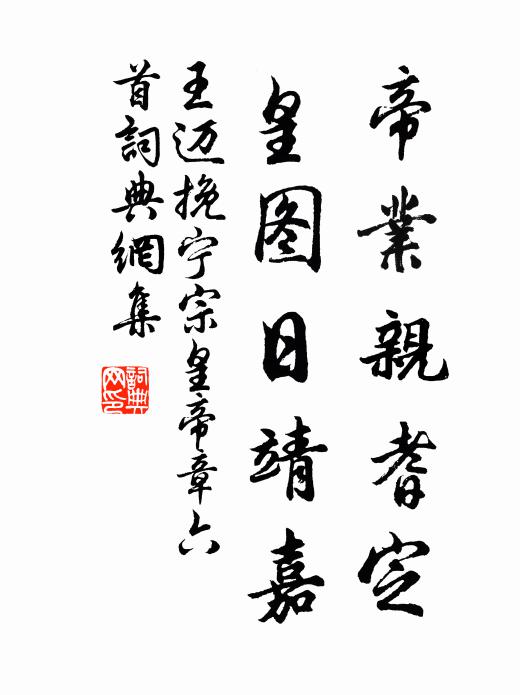 帝業親耆定
皇图日靖嘉
王迈挽宁宗皇帝章六
首詞典網集
詞典
网印